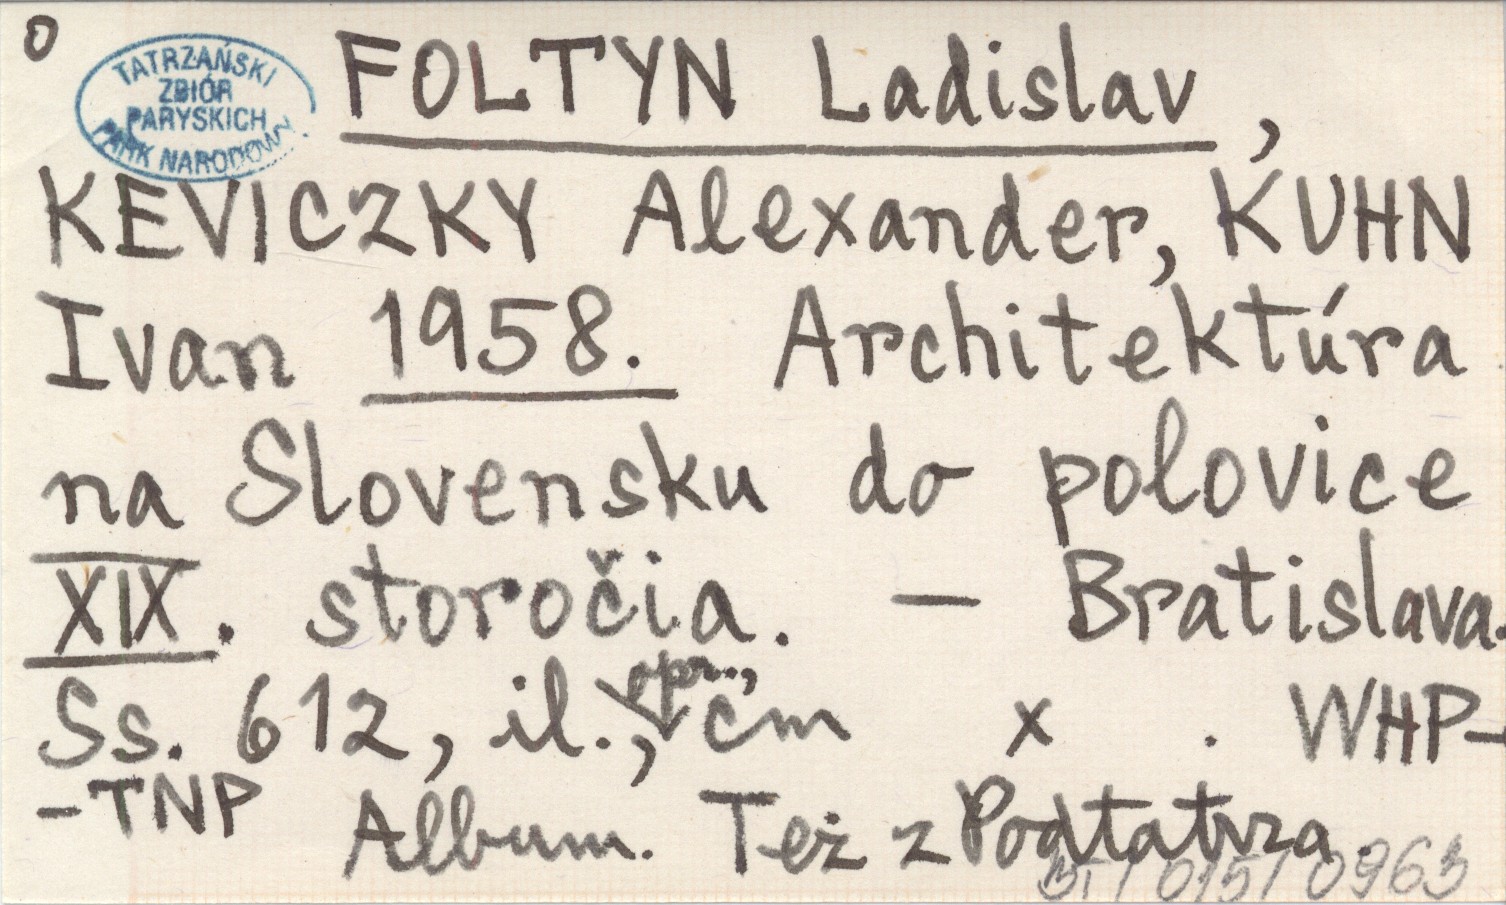 O
TATRZAŃSKI
ZBIÓR
PARYSKICH
PARK NARODOWY
FOLTYN Ladislav,
KEVICZKY Alexander, KUHN
Ivan 1958. Architektúra
na Slovensku do polovice
XIX. storočia. — Bratislava.
opr.,
Ss. 612, il., cm x . WHP-
-TNP Album. Też z Podtatrza.
BT/015/0963